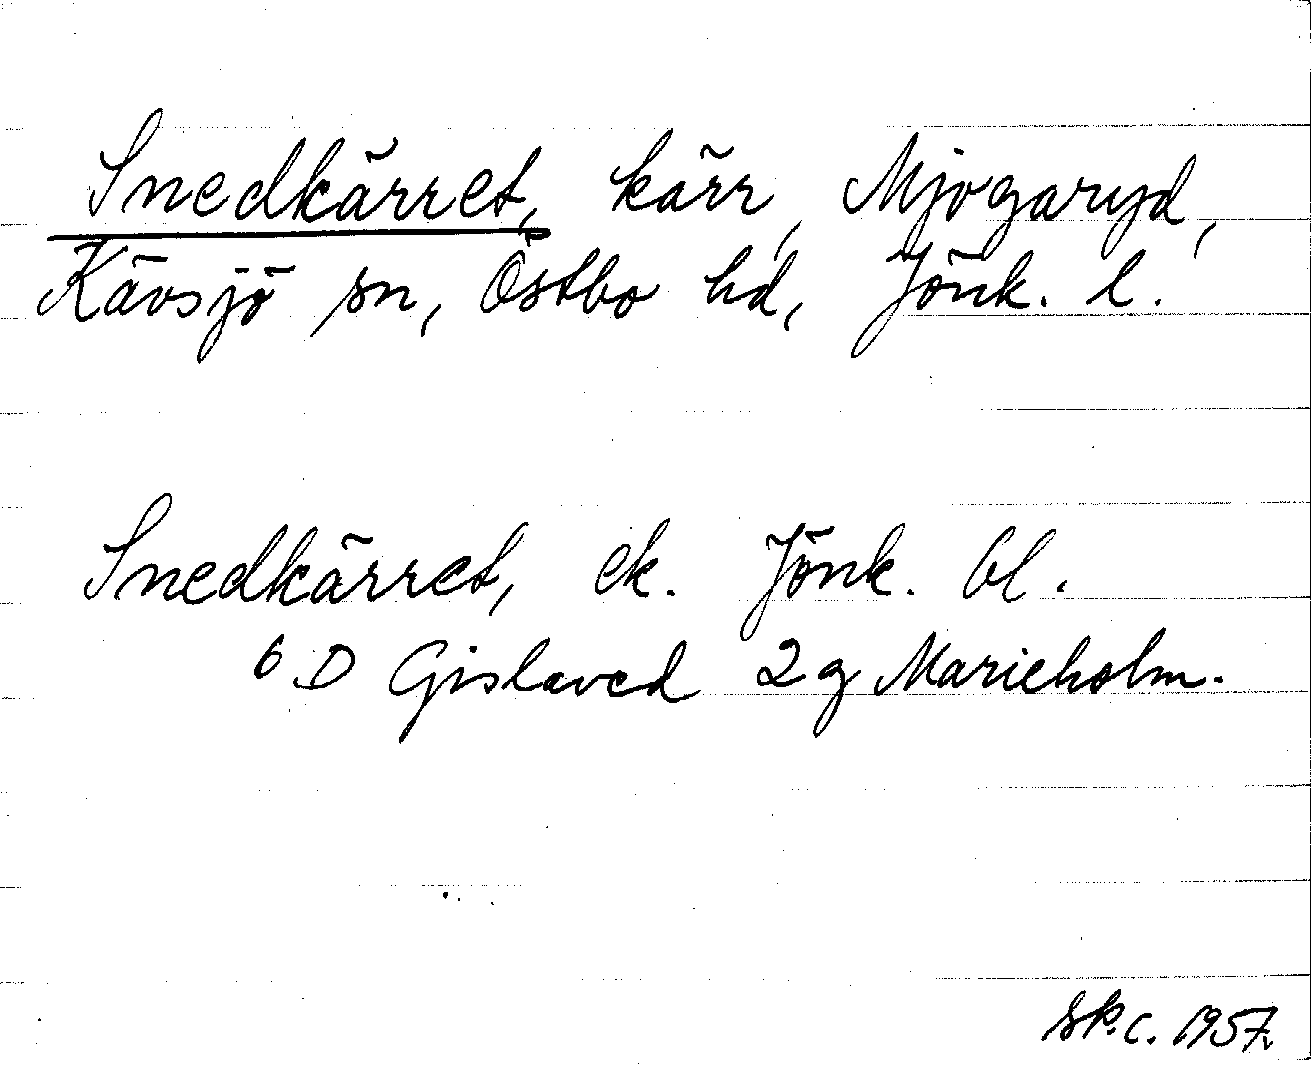 Snedkärret, kärr, Mjogaryd,
Kävsjö sn, Östbo hd, Jönk. l.
Snedkärret, ek. Jönk. bl.
6 D Gislaved 2g Marieholm.
Sk.c. 1957.